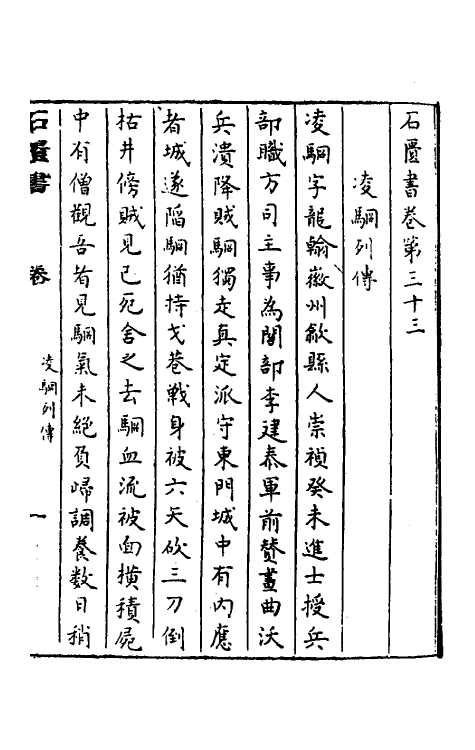 石匱書卷第三十三
凌駉列傳
凌駉字龍翰徽州歙縣人崇禎癸未進士授兵
部職方司主事為閣部李建泰軍前贊畫曲沃
兵潰降賊駉獨走真定派守東門城中有內應
者城遂陷駉猶持戈巷戰身被六矢砍三刀倒
枯井傍賊見已死舍之去駉血流被面橫積屍
中有僧觀吾者見駉氣未絕負歸調養数日稍
石匱書
卷
凌駉列傳
一